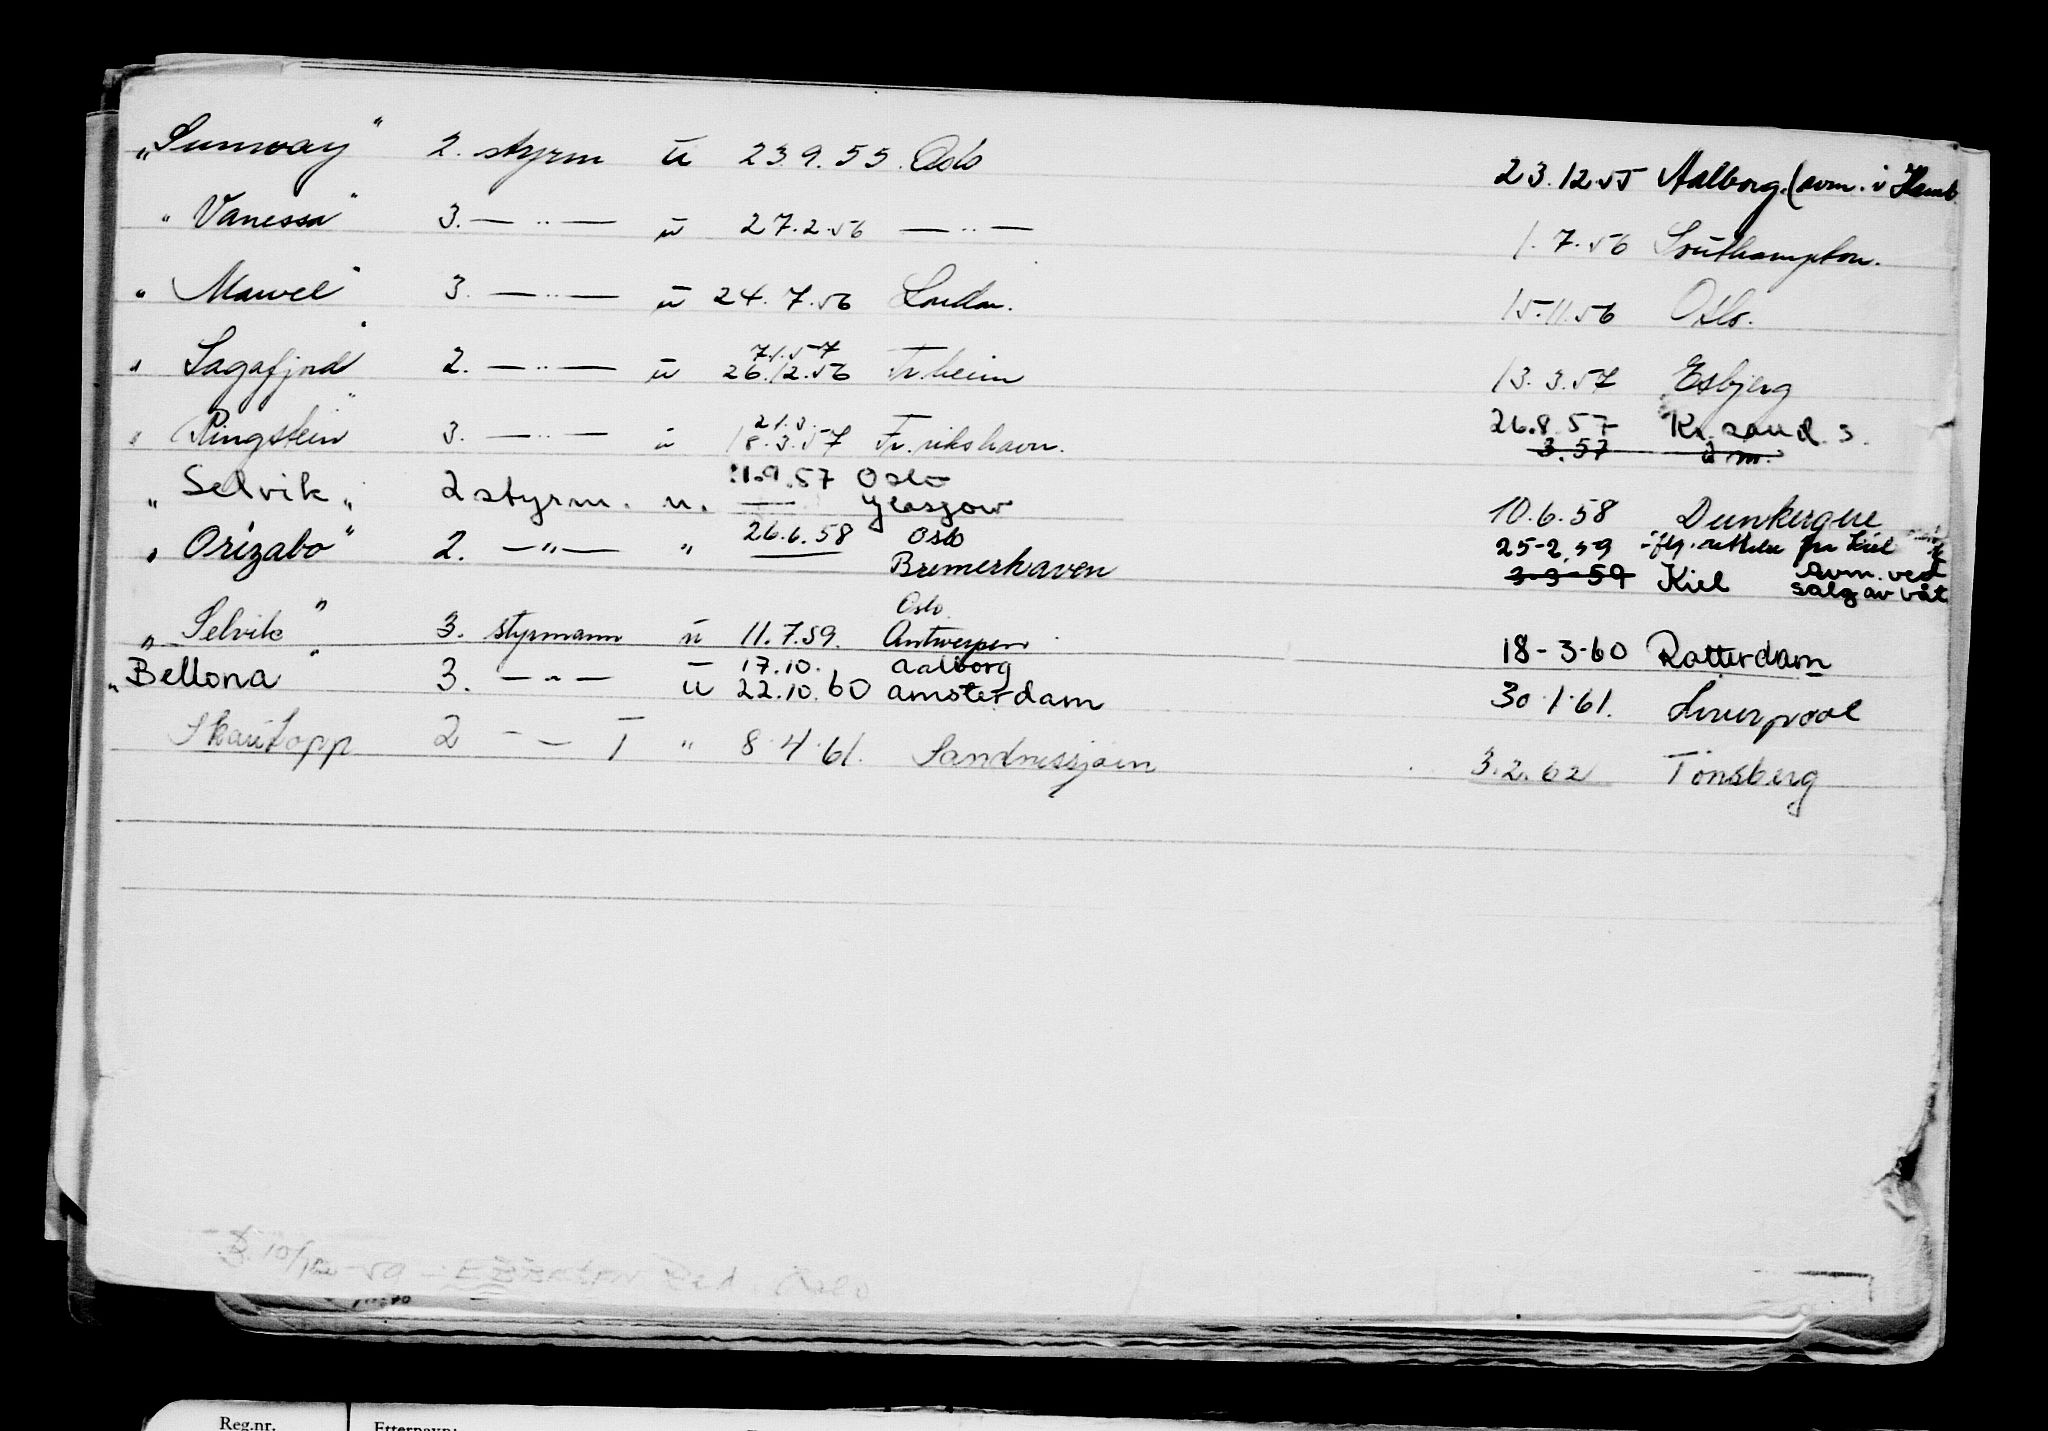 „Sunway" 2. styrm u 23.9.55. Oslo 23.12.55 Aalborg (avm. i Hamb
" Vanessa" 3. — ·· — u 27.2.56 — ·· — 1.7.56 Southampton.
" 3. — ·· — u 24.7.56 London. 15.11.56 Oslo.
7.1.57
" Sagafjord" 2. — ·· — u 26.12.56 Tr.heim 13.3.57 Esbjerg
21.3. 26.8.57 Kr.sand. S.
" Ringstein" 3. — ·· — u 18.3.57 Fr.rikshavn. 3.57
1.9.57 Oslo
„ Selvik „ 2 styrm. u. — Glasgow 10.6.58 Dunkerque
26.6.58 Oslo 25-2.59 Kiel
„ Orizabo" 2. — " — " Bremerhaven 3-3-59 Kiel avm. ved
salg av båt
Oslo
„ Selvik" 3. styrmann u 11.7.59. Antwerpen 18-3-60 Rotterdam
17.10. Aalborg
„Bellona" 3. — " — u 22.10.60 Amsterdam 30.1.61. Liverpool
Skautopp 2 - — T " 8.4.61. Sandnessjøen 3.2.62 Tönsberg
10/12-59 Oslo
Reg.nr. Etternavn: